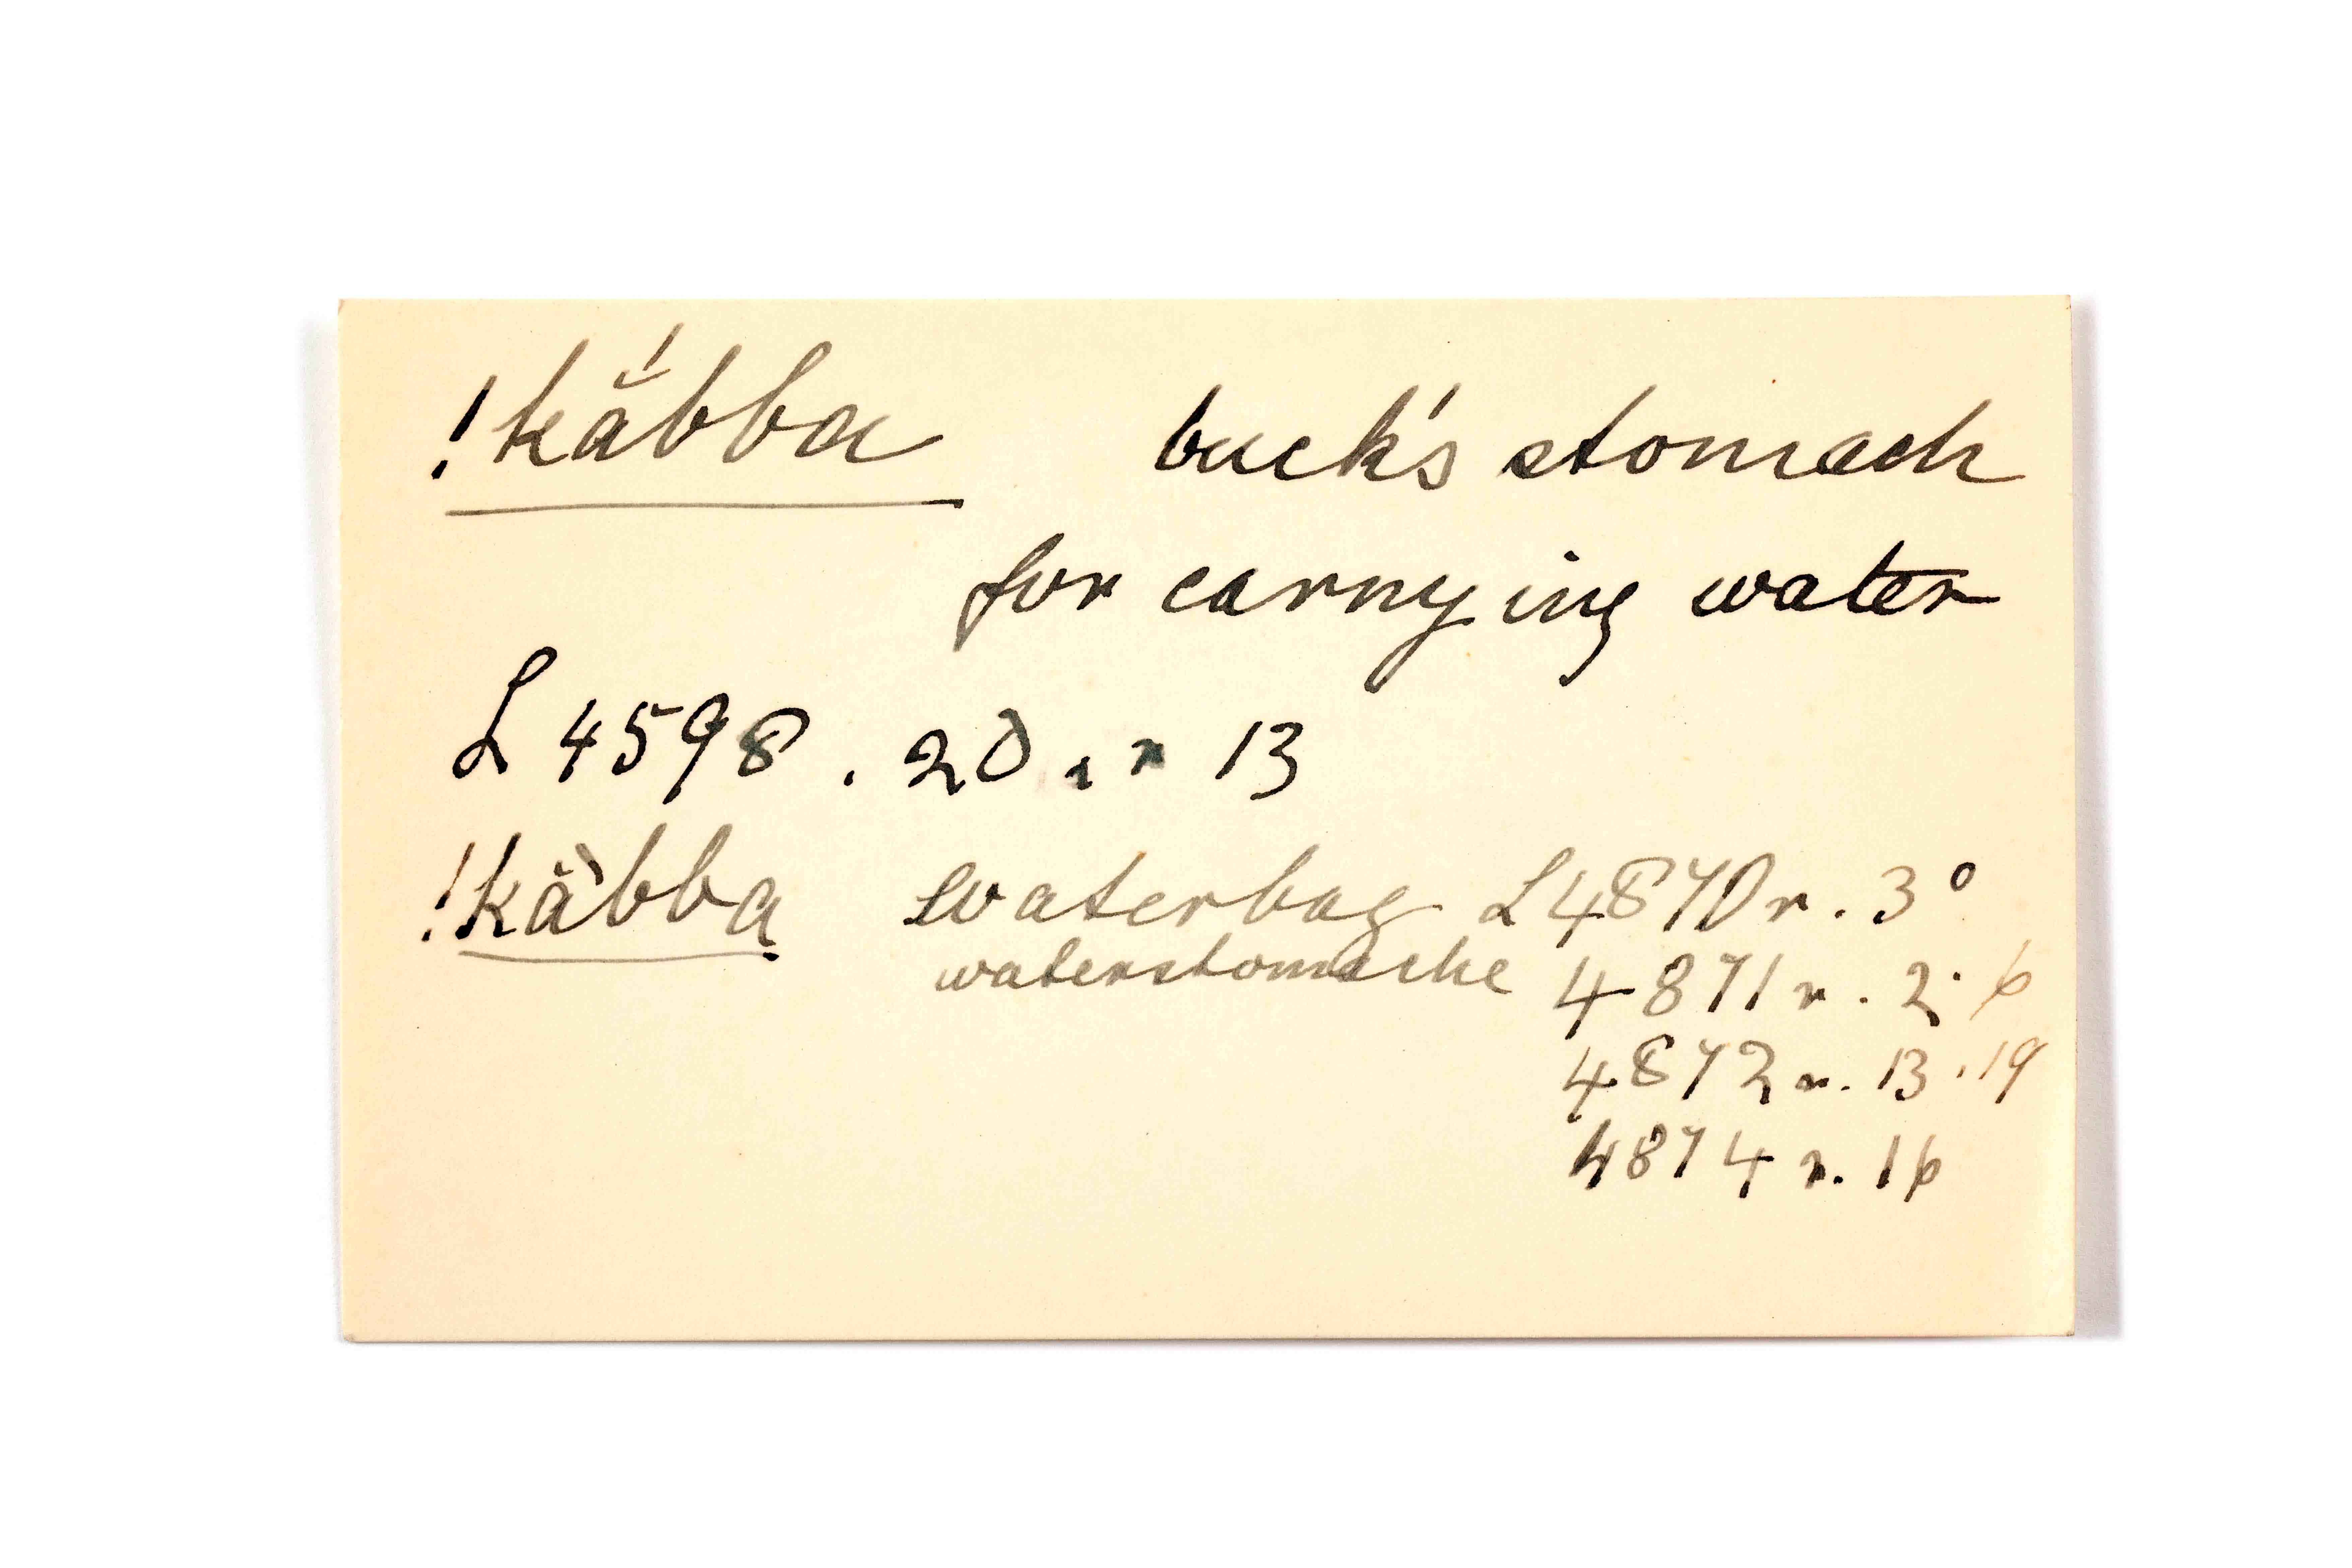 !kắbba buck's stomach
for carrying water
L 4598 . 20 . r 13
!kằbba waterbag L4870 r. 3°
waterstomache 4871 r. 2. 6
4872 r. 13 . 19
4874 r. 16